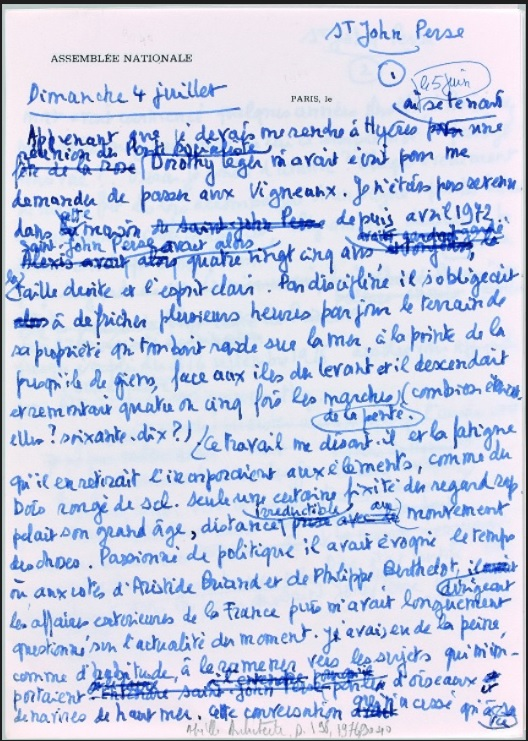 ST John Perse
ASSEMBLÉE NATIONALE
1
le 5 juin
Dimanche 4 juillet
PARIS, le
Apprenant que je devais me rendre à Hyères une
réunion du
fête de la rose Dorothy Leger m'avait écrit pour me
demander de passer aux Vigneaux. Je n'étais pas revenu
dans cette maison de Saint-John Perse depuis avril 1972
Saint-John Perse avait alors
Alexis avait alors quatre vingt cinq ans
la taille droite et l'esprit clair. Par discipline il s'obligeait
à défricher plusieurs heures par jour le terrain de
sa propriété qui tombait raide sur la mer, à la pointe de la
presqu'île de Giens, face aux îles du levant et il descendait
et remontait quatre ou cinq fois les marches (combien
de la pente.
elles ? soixante-dix ?) Ce travail me disait-il et la fatigue
qu'il en retirait l'incorporaient aux éléments, comme du
bois rongé de sel. Seule une certaine fixité du regard rap
irreductible au
pelait son grand âge, distance prise avec le mouvement
des choses. Passionné de politique il avait évoqué le temps
où aux côtés d'Aristide Briand et de Philippe Berthelot,
dirigeant
les affaires exterieures de la France puis m'avait longuement
questionné sur l'actualité du moment. J'avais eu de la peine
comme d'habitude, à le ramener vers les sujets qui m'im-
portaient entendre Saint-John Perse parler d'oiseaux
de navires de haut mer. Cette conversation n'a cessé qu'à sa
Abeille Architecte, p. 196, 1976